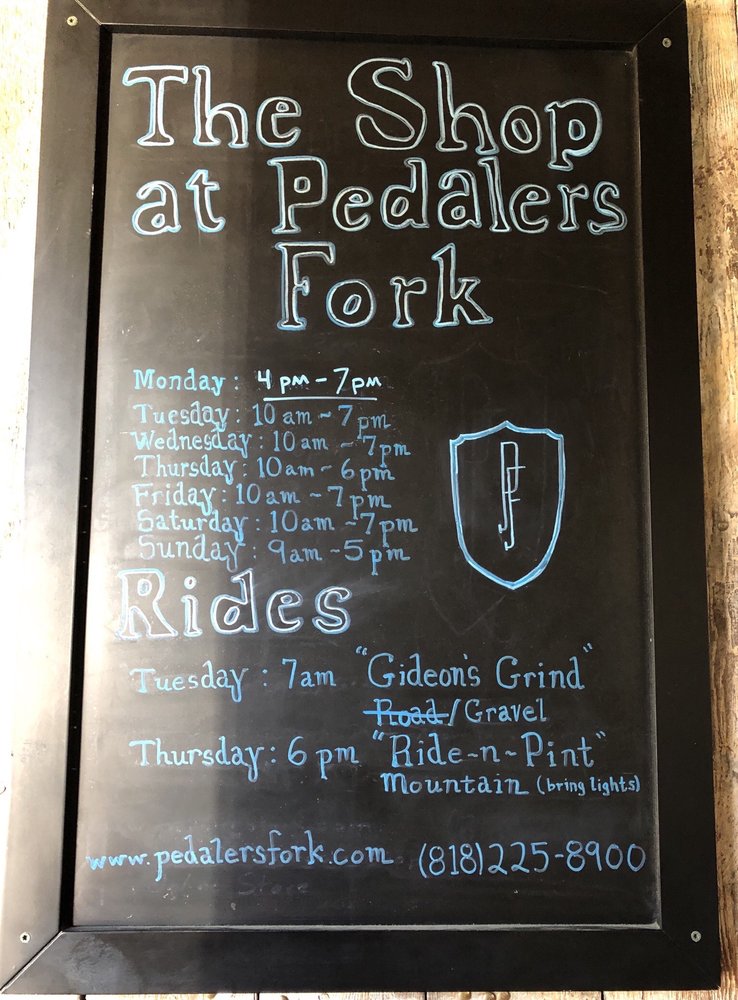 The Shop
at Pedalers
Fork
Monday: 4 pm - 7 pm
Tuesday: 10 am ~ 7 pm
Wednesday: 10 am ~ 7 pm
Thursday: 10 am ~ 6 pm
Friday: 10 am ~ 7 pm
Saturday: 10 am ~ 7 pm
Sunday: 9 am ~ 5 pm
PF
Rides
Tuesday: 7am "Gideon's Grind"
Road/Gravel
Thursday: 6 pm "Ride-n-Pint"
Mountain (bring lights)
www.pedalersfork.com (818)225-8900
Store